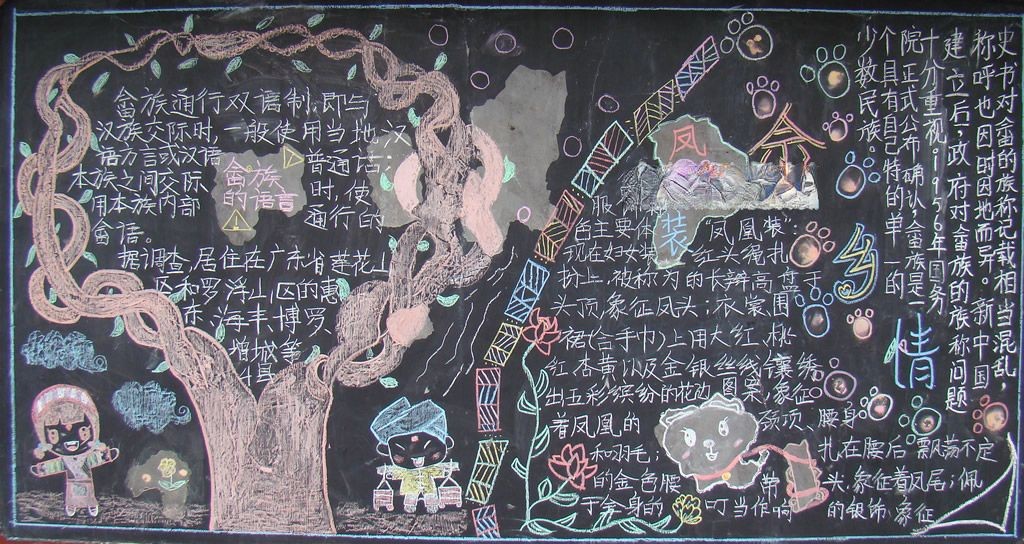 畲族通行双语制,即与
汉族交际时,一般使用当地汉
语方言或汉语普通话;
本族之间交际时,使
用本族内部通行的
畲语。
畲族
的语言
据调查,居住在广东省莲花山
区和罗浮山区的惠
东,海丰,博罗
增城等
4县
凤
服
装
畲
乡
情
凤凰装:
红头绳扎
的长辫高盘于
头顶,象征凤头;衣裳、围
裙(合手巾)上用大红、桃
红、杏黄以及金银丝线镶绣
出五彩缤纷的花边图案,象征
着凤凰的颈项、腰身
和羽毛;扎在腰后飘荡不定
的金色腰带头,象征着凤尾;佩
于全身的叮当作响的银饰,象征
史书对畲的族称记载相当混乱,
称呼也因时因地而异。新中国
建立后,政府对畲族的族称问题
十分重视,1956年国务
院正式公布确认,畲族是一
个具有自己特的单一的
少数民族。